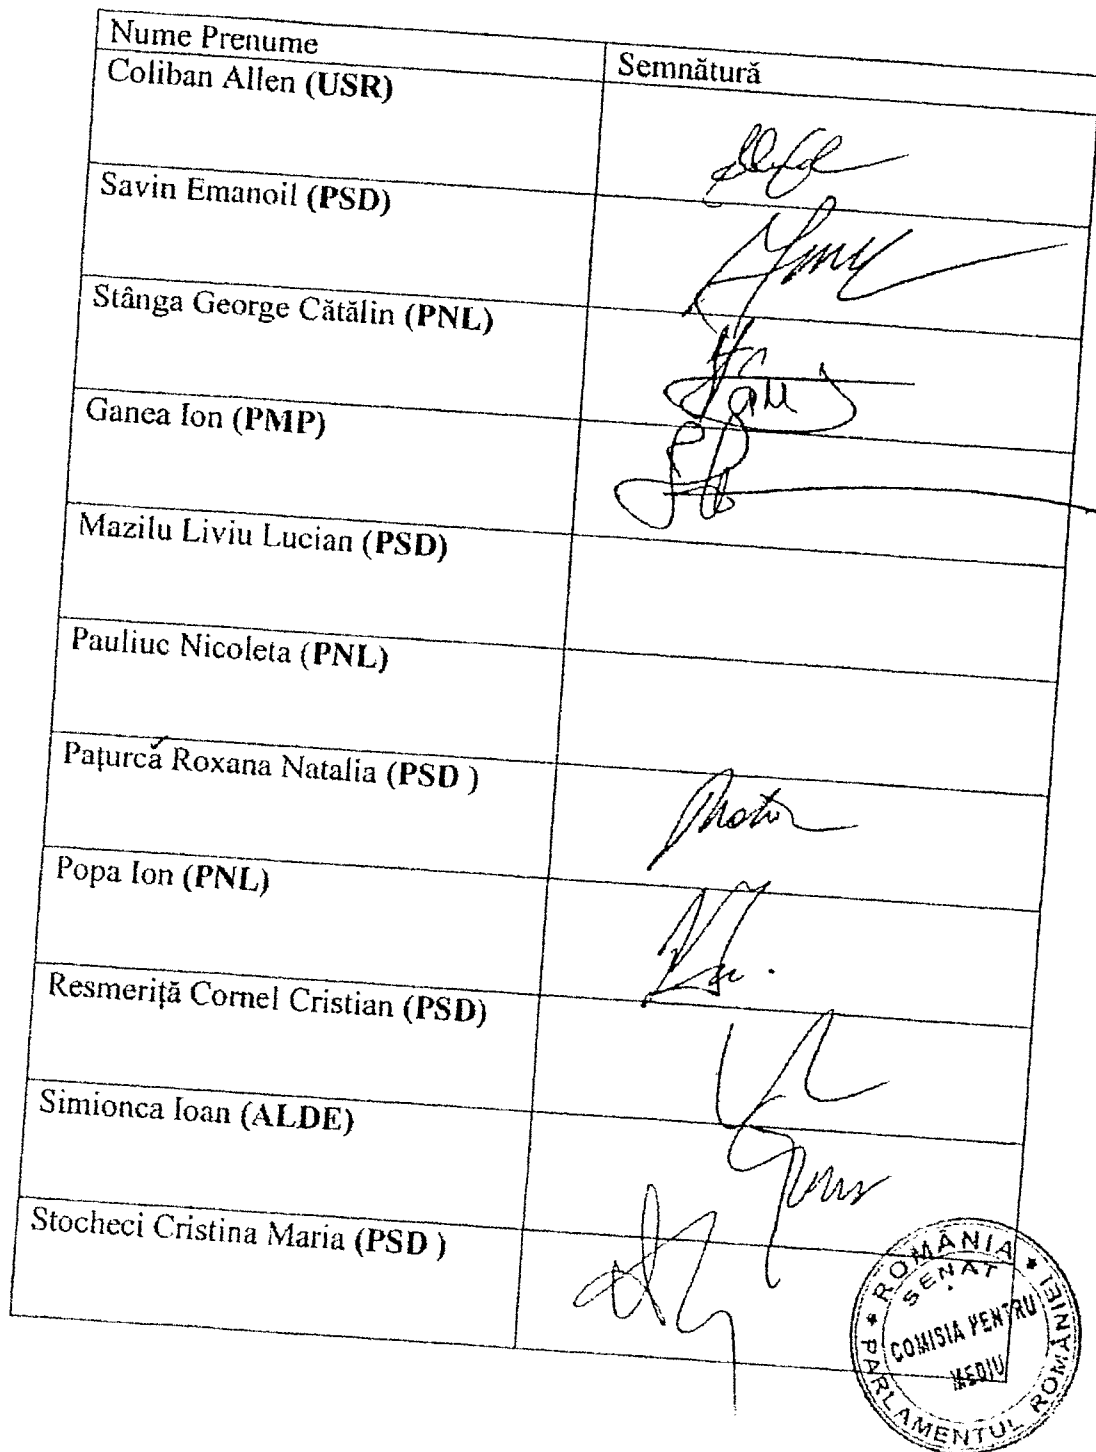 Nume Prenume
Semnătură
Coliban Allen (USR)
Savin Emanoil (PSD)
Stânga George Cătălin (PNL)
Ganea Ion (PMP)
Mazilu Liviu Lucian (PSD)
Pauliuc Nicoleta (PNL)
Pațurcă Roxana Natalia (PSD )
Popa Ion (PNL)
Resmeriță Cornel Cristian (PSD)
Simionca Ioan (ALDE)
Stocheci Cristina Maria (PSD )
ROMÂNIA * PARLAMENTUL ROMÂNIEI *
SENAT
COMISIA PENTRU
MEDIU